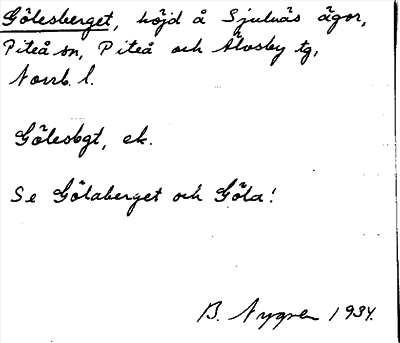 Gölesberget, höjd å Sjulnäs ägor,
Piteå sn, Piteå och Älvsby tg,
Norrb. l.
Gölesbgt, ek.
Se Gölaberget och Göla!
B. Nygren 1934.